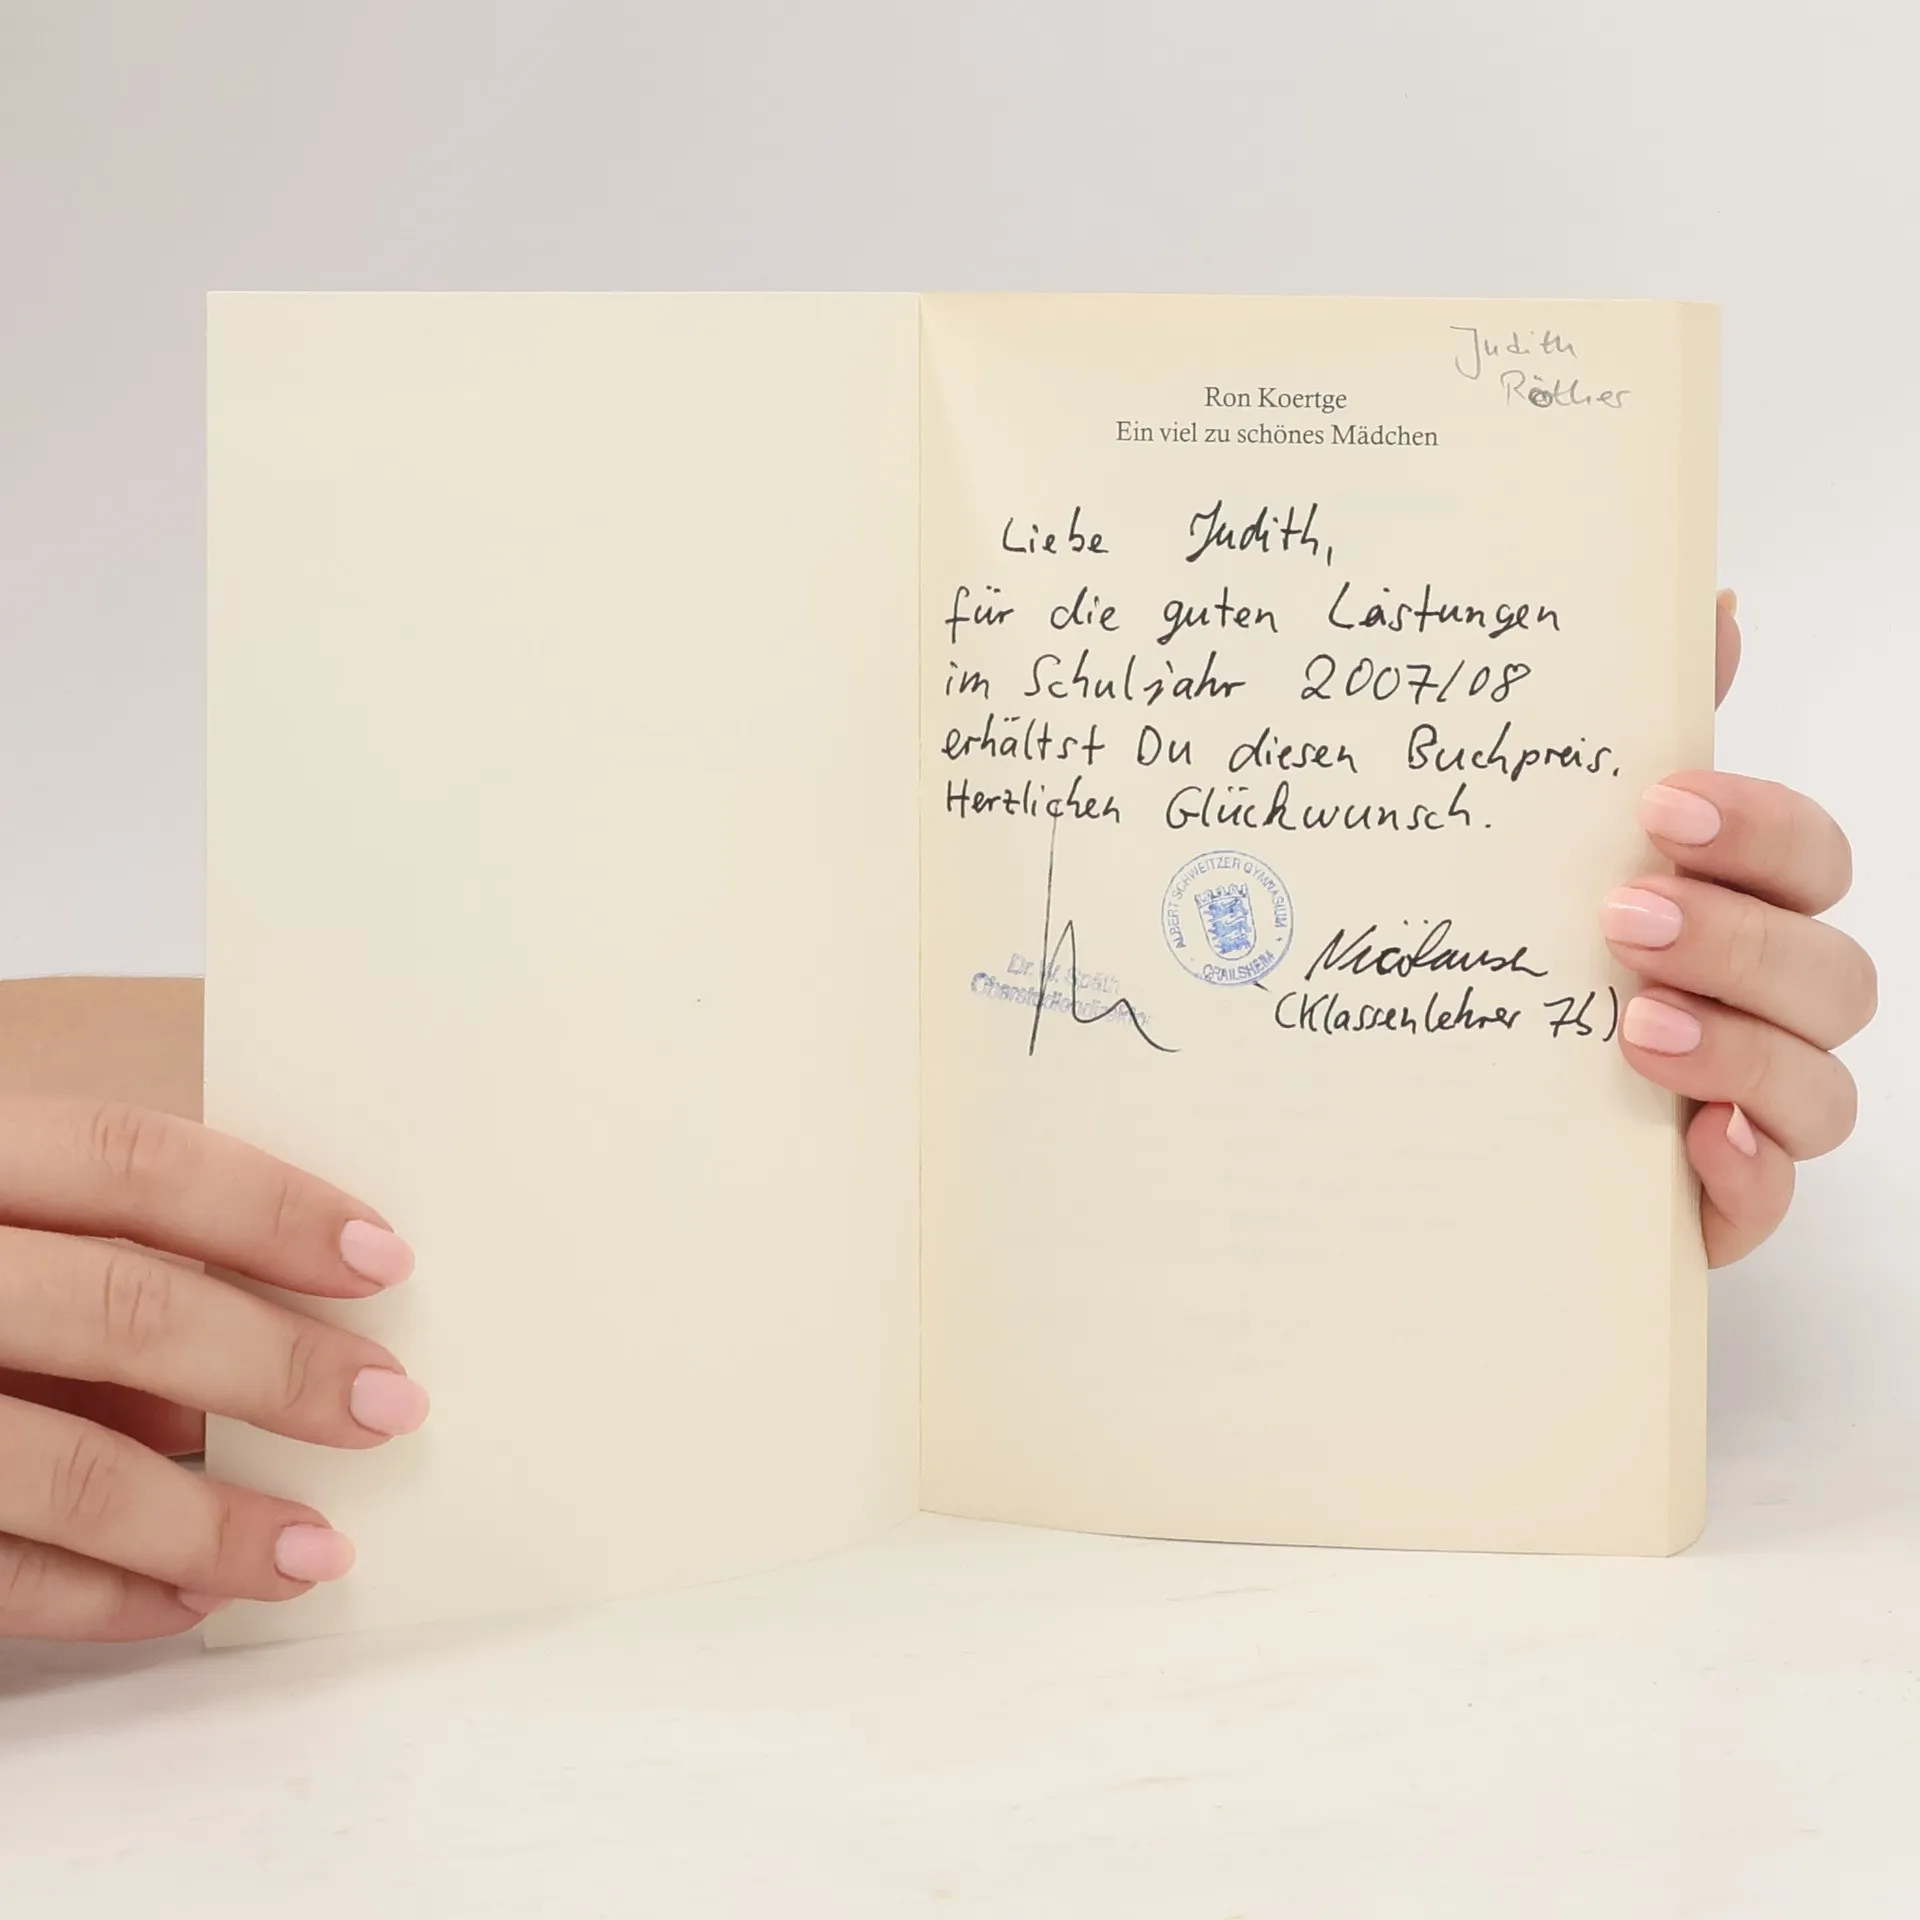 Judith
Röther
Ron Koertge
Ein viel zu schönes Mädchen
Liebe Judith,
für die guten Leistungen
im Schuljahr 2007/08
erhältst Du diesen Buchpreis.
Herzlichen Glückwunsch.
ALBERT SCHWEITZER GYMNASIUM
CRAILSHEIM
Dr. Späth
Oberstudiendirektor
(Klassenlehrer 7b)